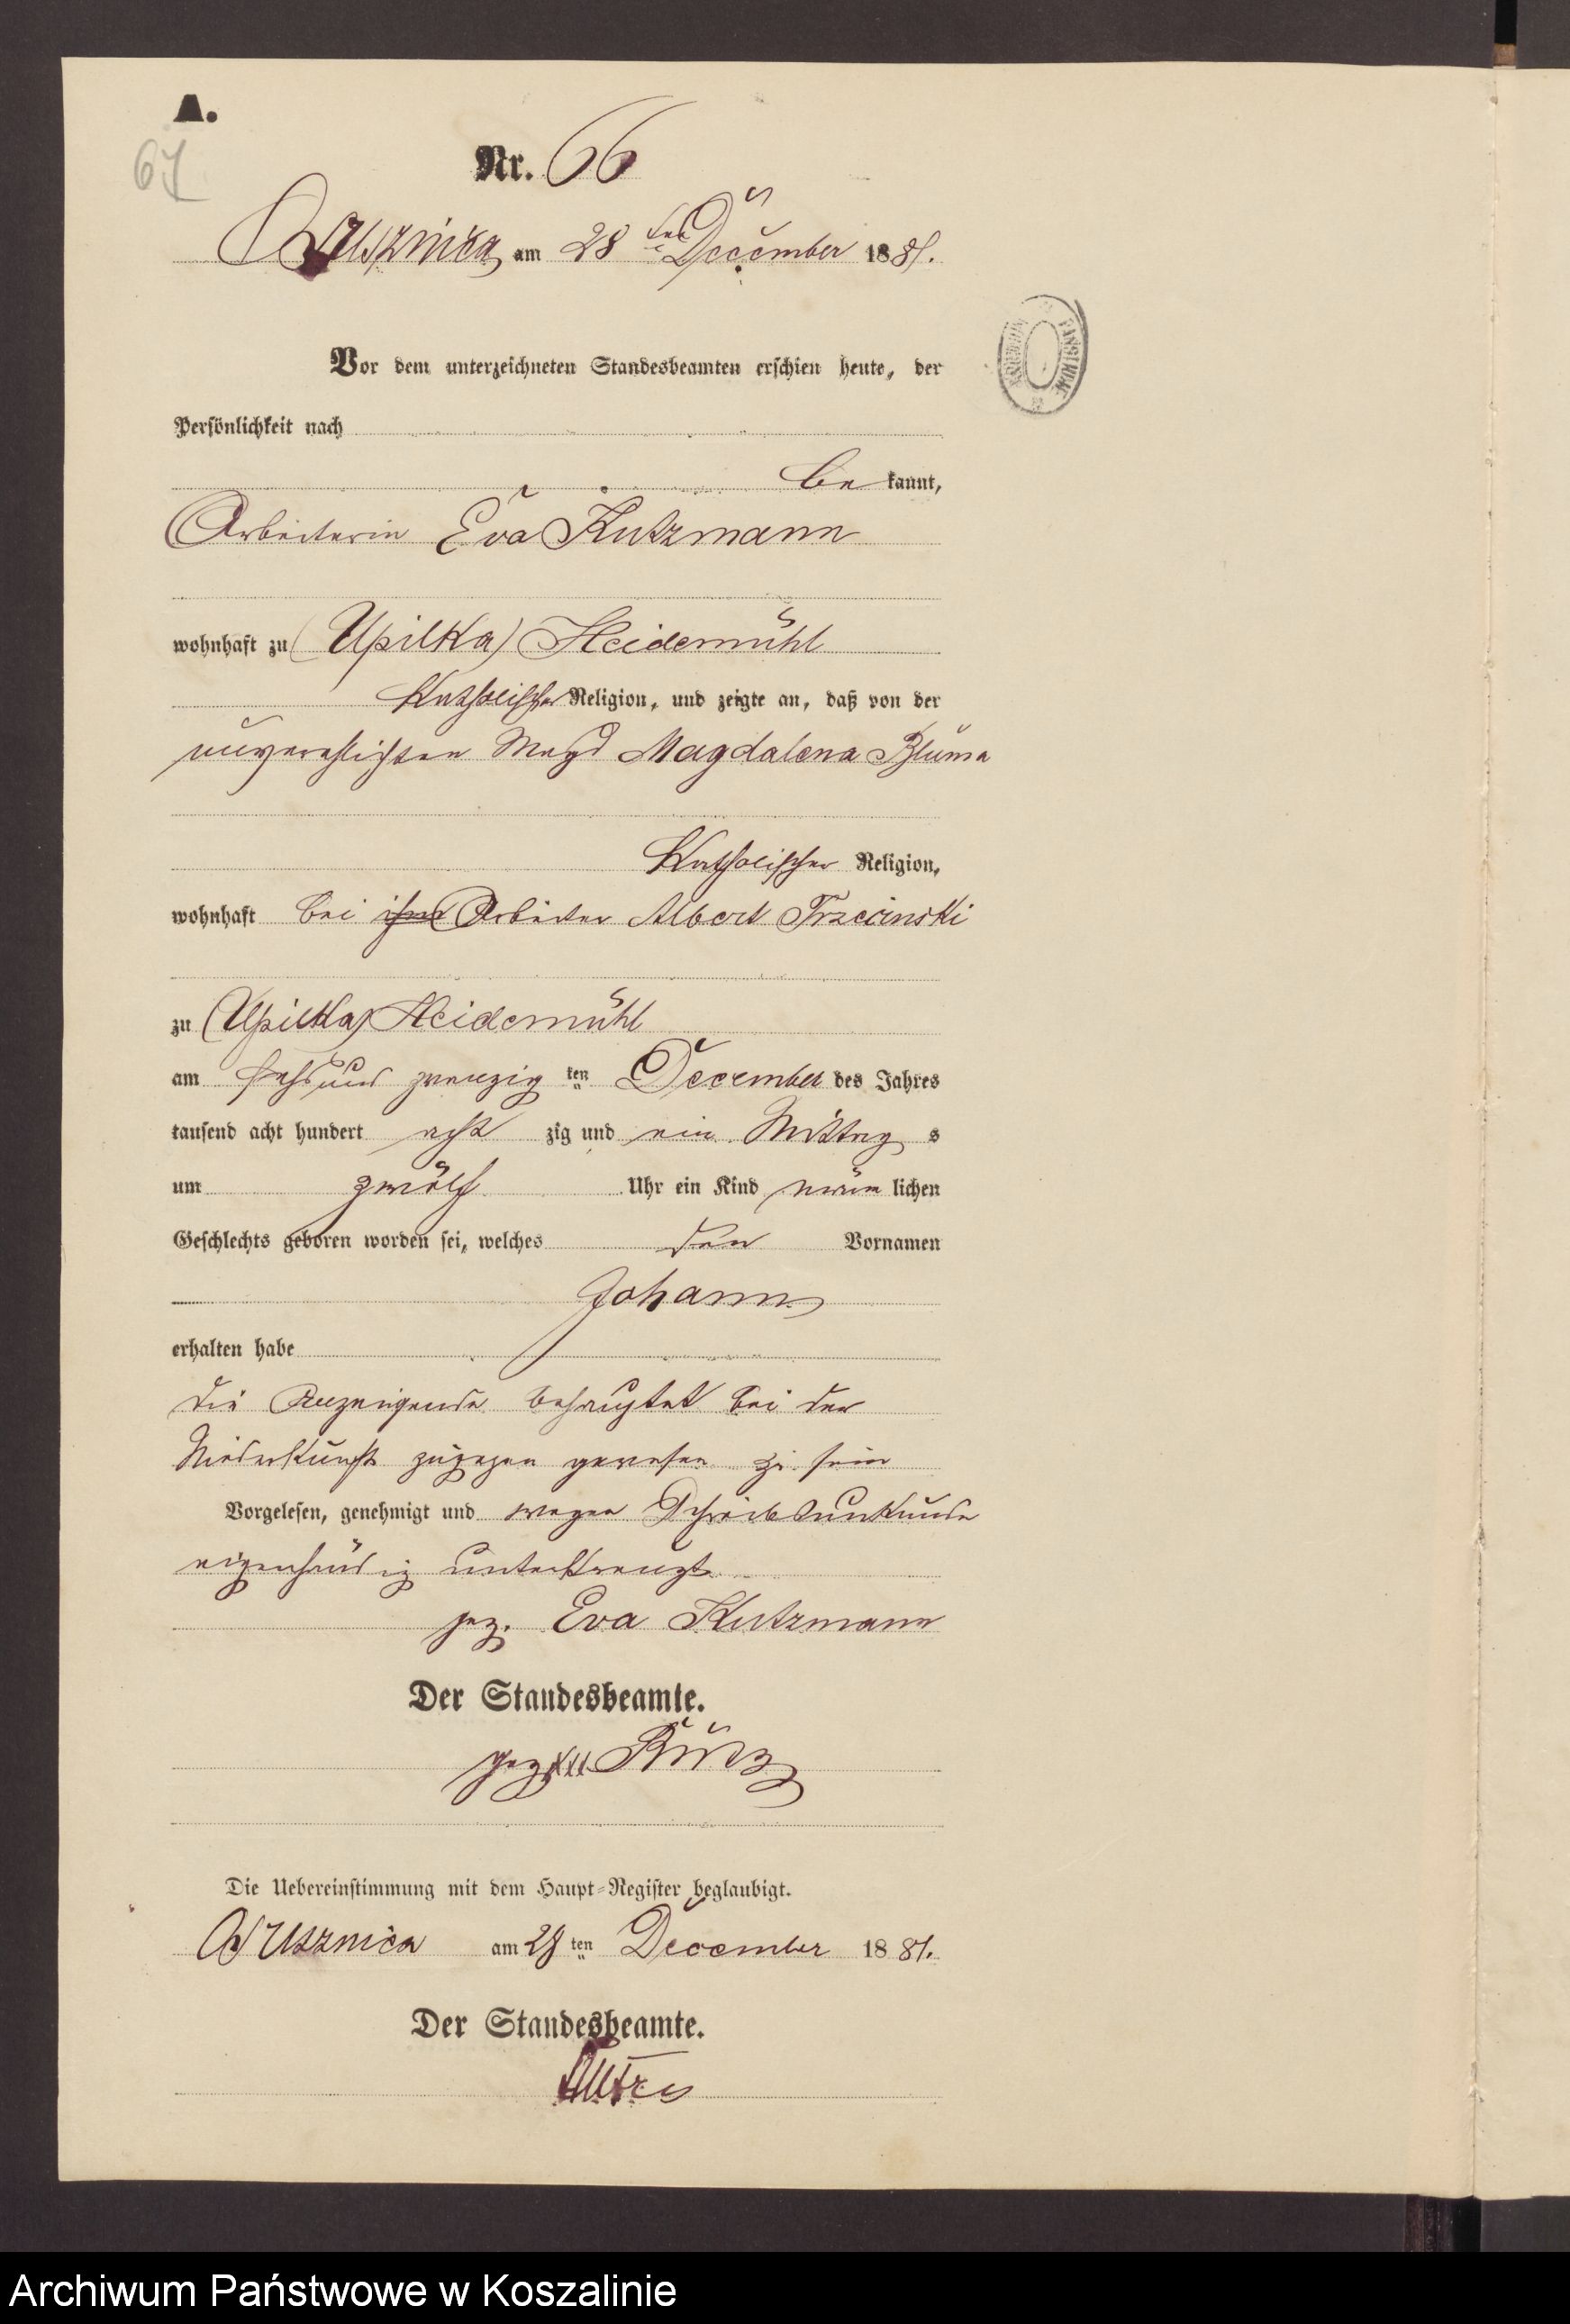 A.
67
Nr. 66
am 28 ten December 1881.
Vor dem unterzeichneten Standesbeamten erschien heute, der
Persönlichkeit nach
be kannt,
Arbeiterin Eva Kutzmann
wohnhaft zu (Upilka) Heidemühl
katholischer Religion, und zeigte an, daß von der
unverehlichten Magd Magdalena Bluma
katholischer Religion,
wohnhaft bei ihr Arbeiter Albert Trzcinski
zu (Upilka) Heidemühl
am sechsundzwanzig ten December des Jahres
tausend acht hundert acht zig und ein Mittag s
um zwölf Uhr ein Kind männ lichen
Geschlechts geboren worden sei, welches den Vornamen
Johann
erhalten habe
Die Anzeigende behauptet bei der
Niederkunft zugegen gewesen zu sein
Vorgelesen, genehmigt und wegen Schreibensunkunde
eigenhändig unterkreuzt
gez. Eva Kutzmann
Der Standesbeamte.
gez.
Die Uebereinstimmung mit dem Haupt-Register beglaubigt.
am 28 ten December 1881.
Der Standesbeamte.
Archiwum Państwowe w Koszalinie